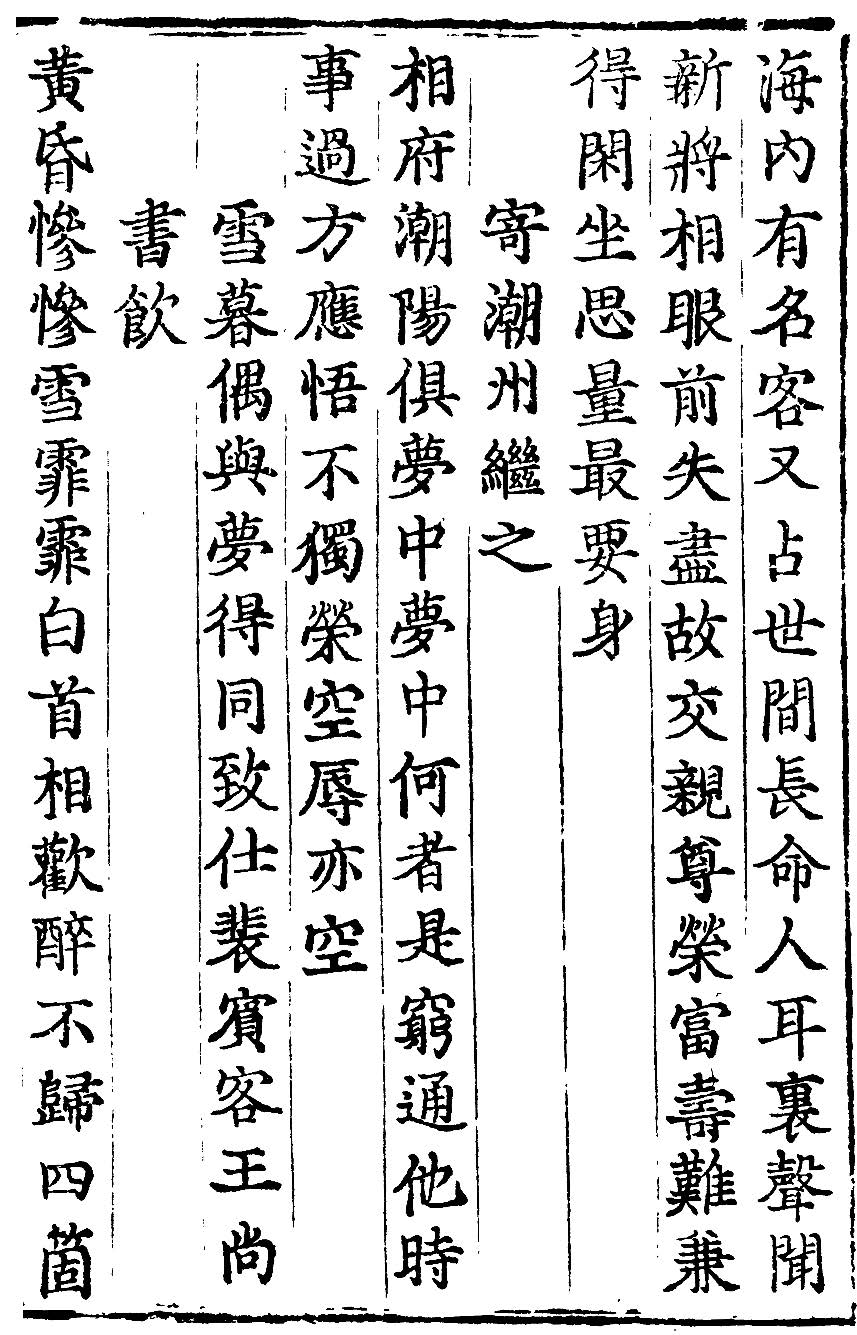 海内有名客又占世間長命人耳裏聲聞
新將相眼前失盡故交親尊榮富壽難兼
得閑坐思量最要身
寄潮州繼之
相府潮陽俱夢中夢中何者是窮通他時
事過方應悟不獨榮空辱亦空
雪暮偶與夢得同致仕裴賓客王尚
書飲
黃昏慘慘雪霏霏白首相歡醉不歸四箇